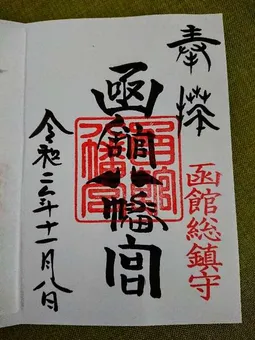 奉拝
函館総鎮守
函館八幡宮
令和二年十一月八日